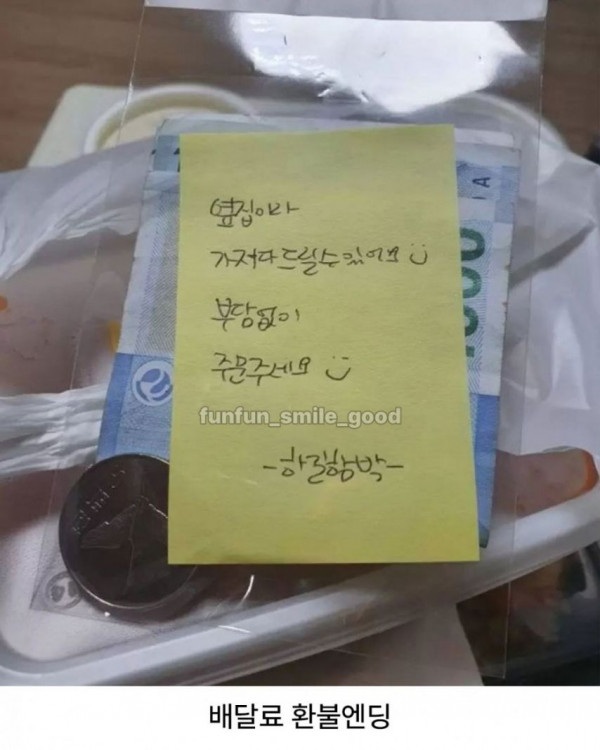 옆집이라
가저다 드릴수 있어요
부담없이
주문주세요
funfun_smile_good
배달료 환불엔딩